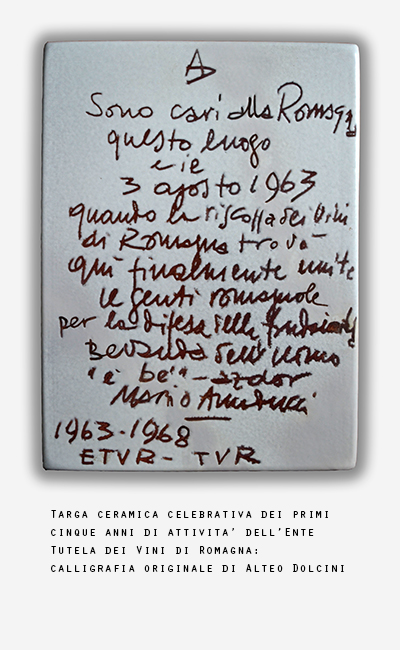 AD
Sono cari alla Romagna
questo luogo
e il
3 agosto 1963
quando la riscossa dei Vini
di Romagna trovò
qui finalmente unite
le genti romagnole
per la difesa della
Bevanda dell'Uomo
"è be'" - azdor
Mario
1963-1968
ETVR - TVR
Targa ceramica celebrativa dei primi
cinque anni di attivita' dell'Ente
Tutela dei Vini di Romagna:
calligrafia originale di Alteo Dolcini